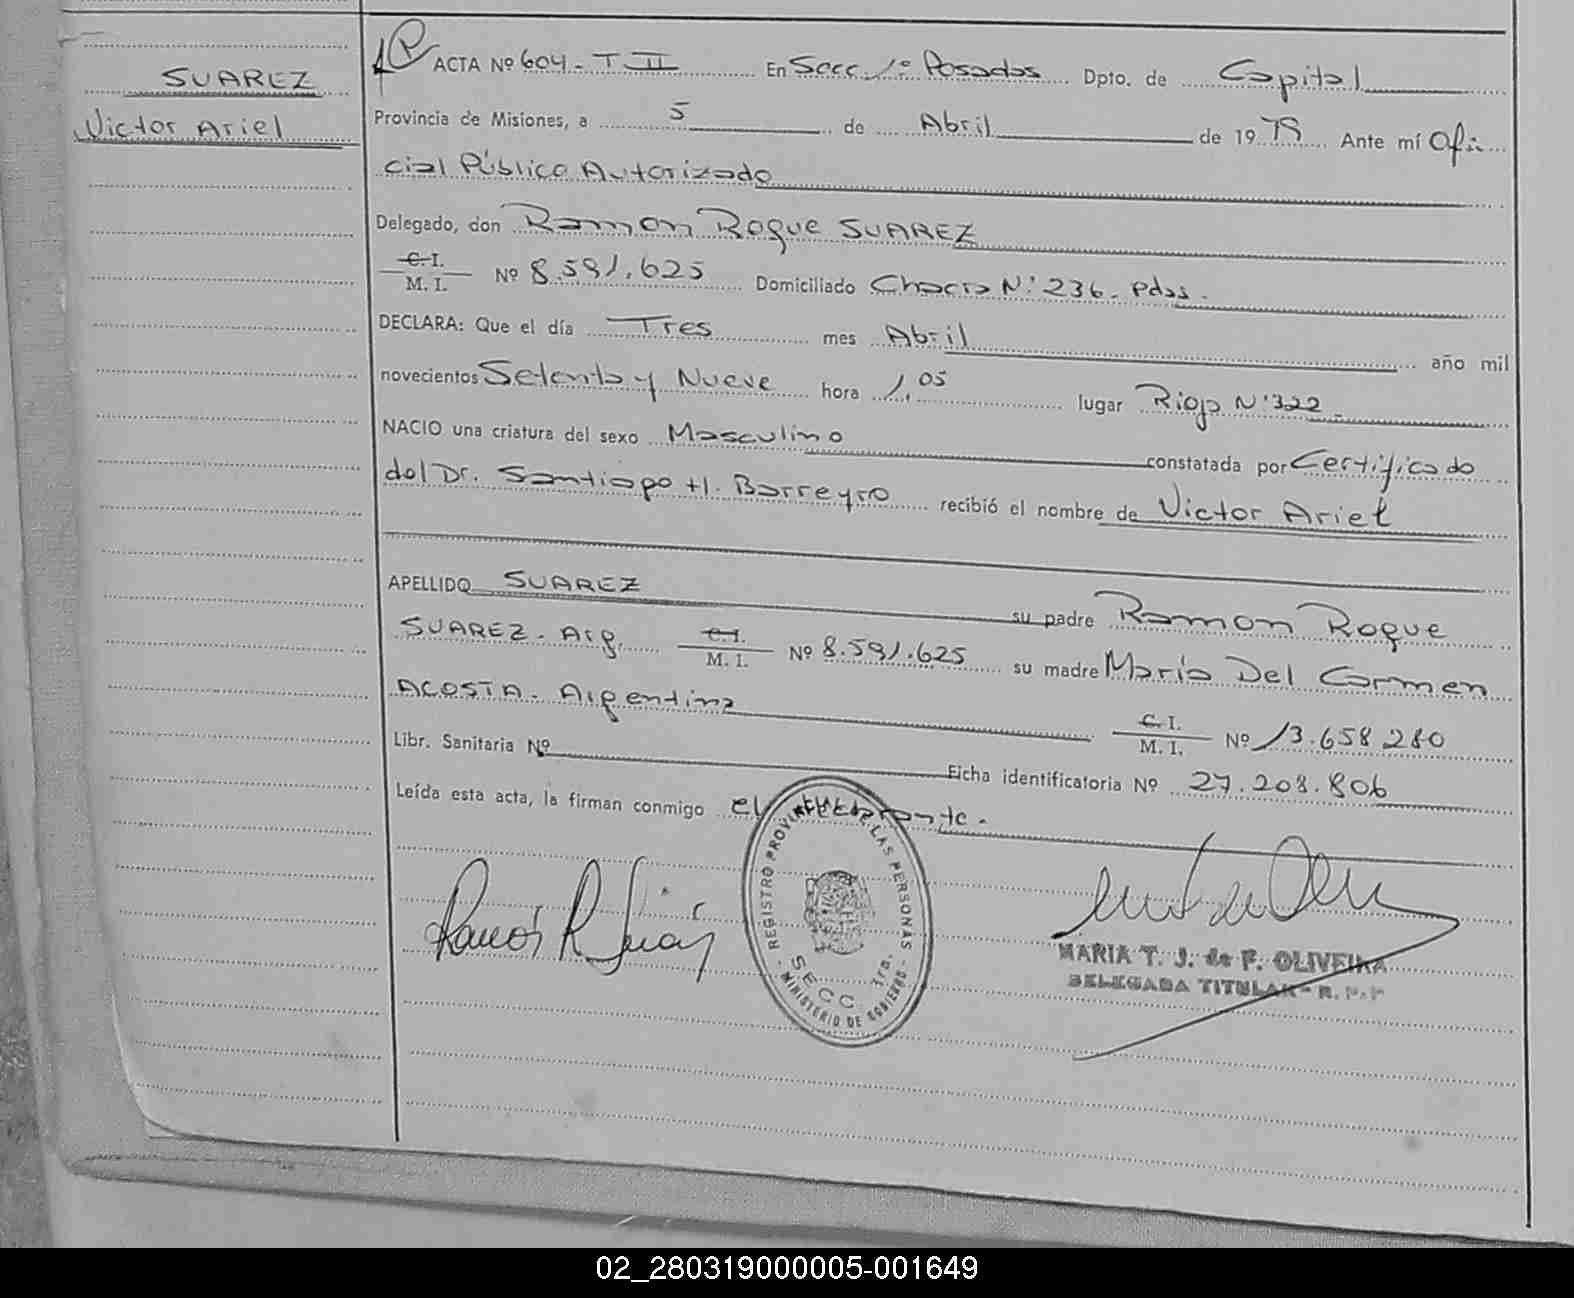 SUAREZ
Victor Ariel
ACTA Nº 604 - T II En Secc. 1º Posadas Dpto. de Capital
Provincia de Misiones, a 5 de Abril de 1979 Ante mí Ofi
cial Público Autorizado
Delegado, don Ramon Roque SUAREZ
C. I.
M. I. Nº 8.591.625 Domiciliado Chacra Nº 236 - Pdas.
DECLARA: Que el día Tres mes Abril año mil
novecientos Setenta y Nueve hora 1,05 lugar Rioja Nº 322
NACIO una criatura del sexo Masculino constatada por Certificado
del Dr. Santiago H. Barreyro recibió el nombre de Victor Ariel
APELLIDO SUAREZ su padre Ramon Roque
SUAREZ - Arg. C. I. M. I. Nº 8.591.625 su madre Maria Del Carmen
ACOSTA - Argentina C. I. M. I. Nº 13.658.280
Libr. Sanitaria Nº Ficha identificatoria Nº 27.208.806
Leída esta acta, la firman conmigo el declarante.
REGISTRO PROVINCIAL DE LAS PERSONAS
SECC. 1ra.
- MINISTERIO DE GOBIERNO -
Ramón R Suárez
MARIA T. J. de F. OLIVEIRA
DELEGADA TITULAR - R. P. P
02_280319000005-001649